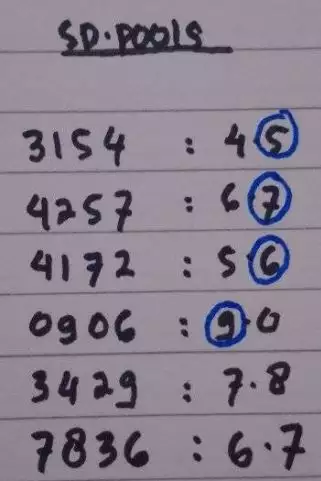 SD.POOLS
3154 : 4 5
4257 : 6 7
4172 : 5 6
0906 : 9.0
3429 : 7.8
7836 : 6.7